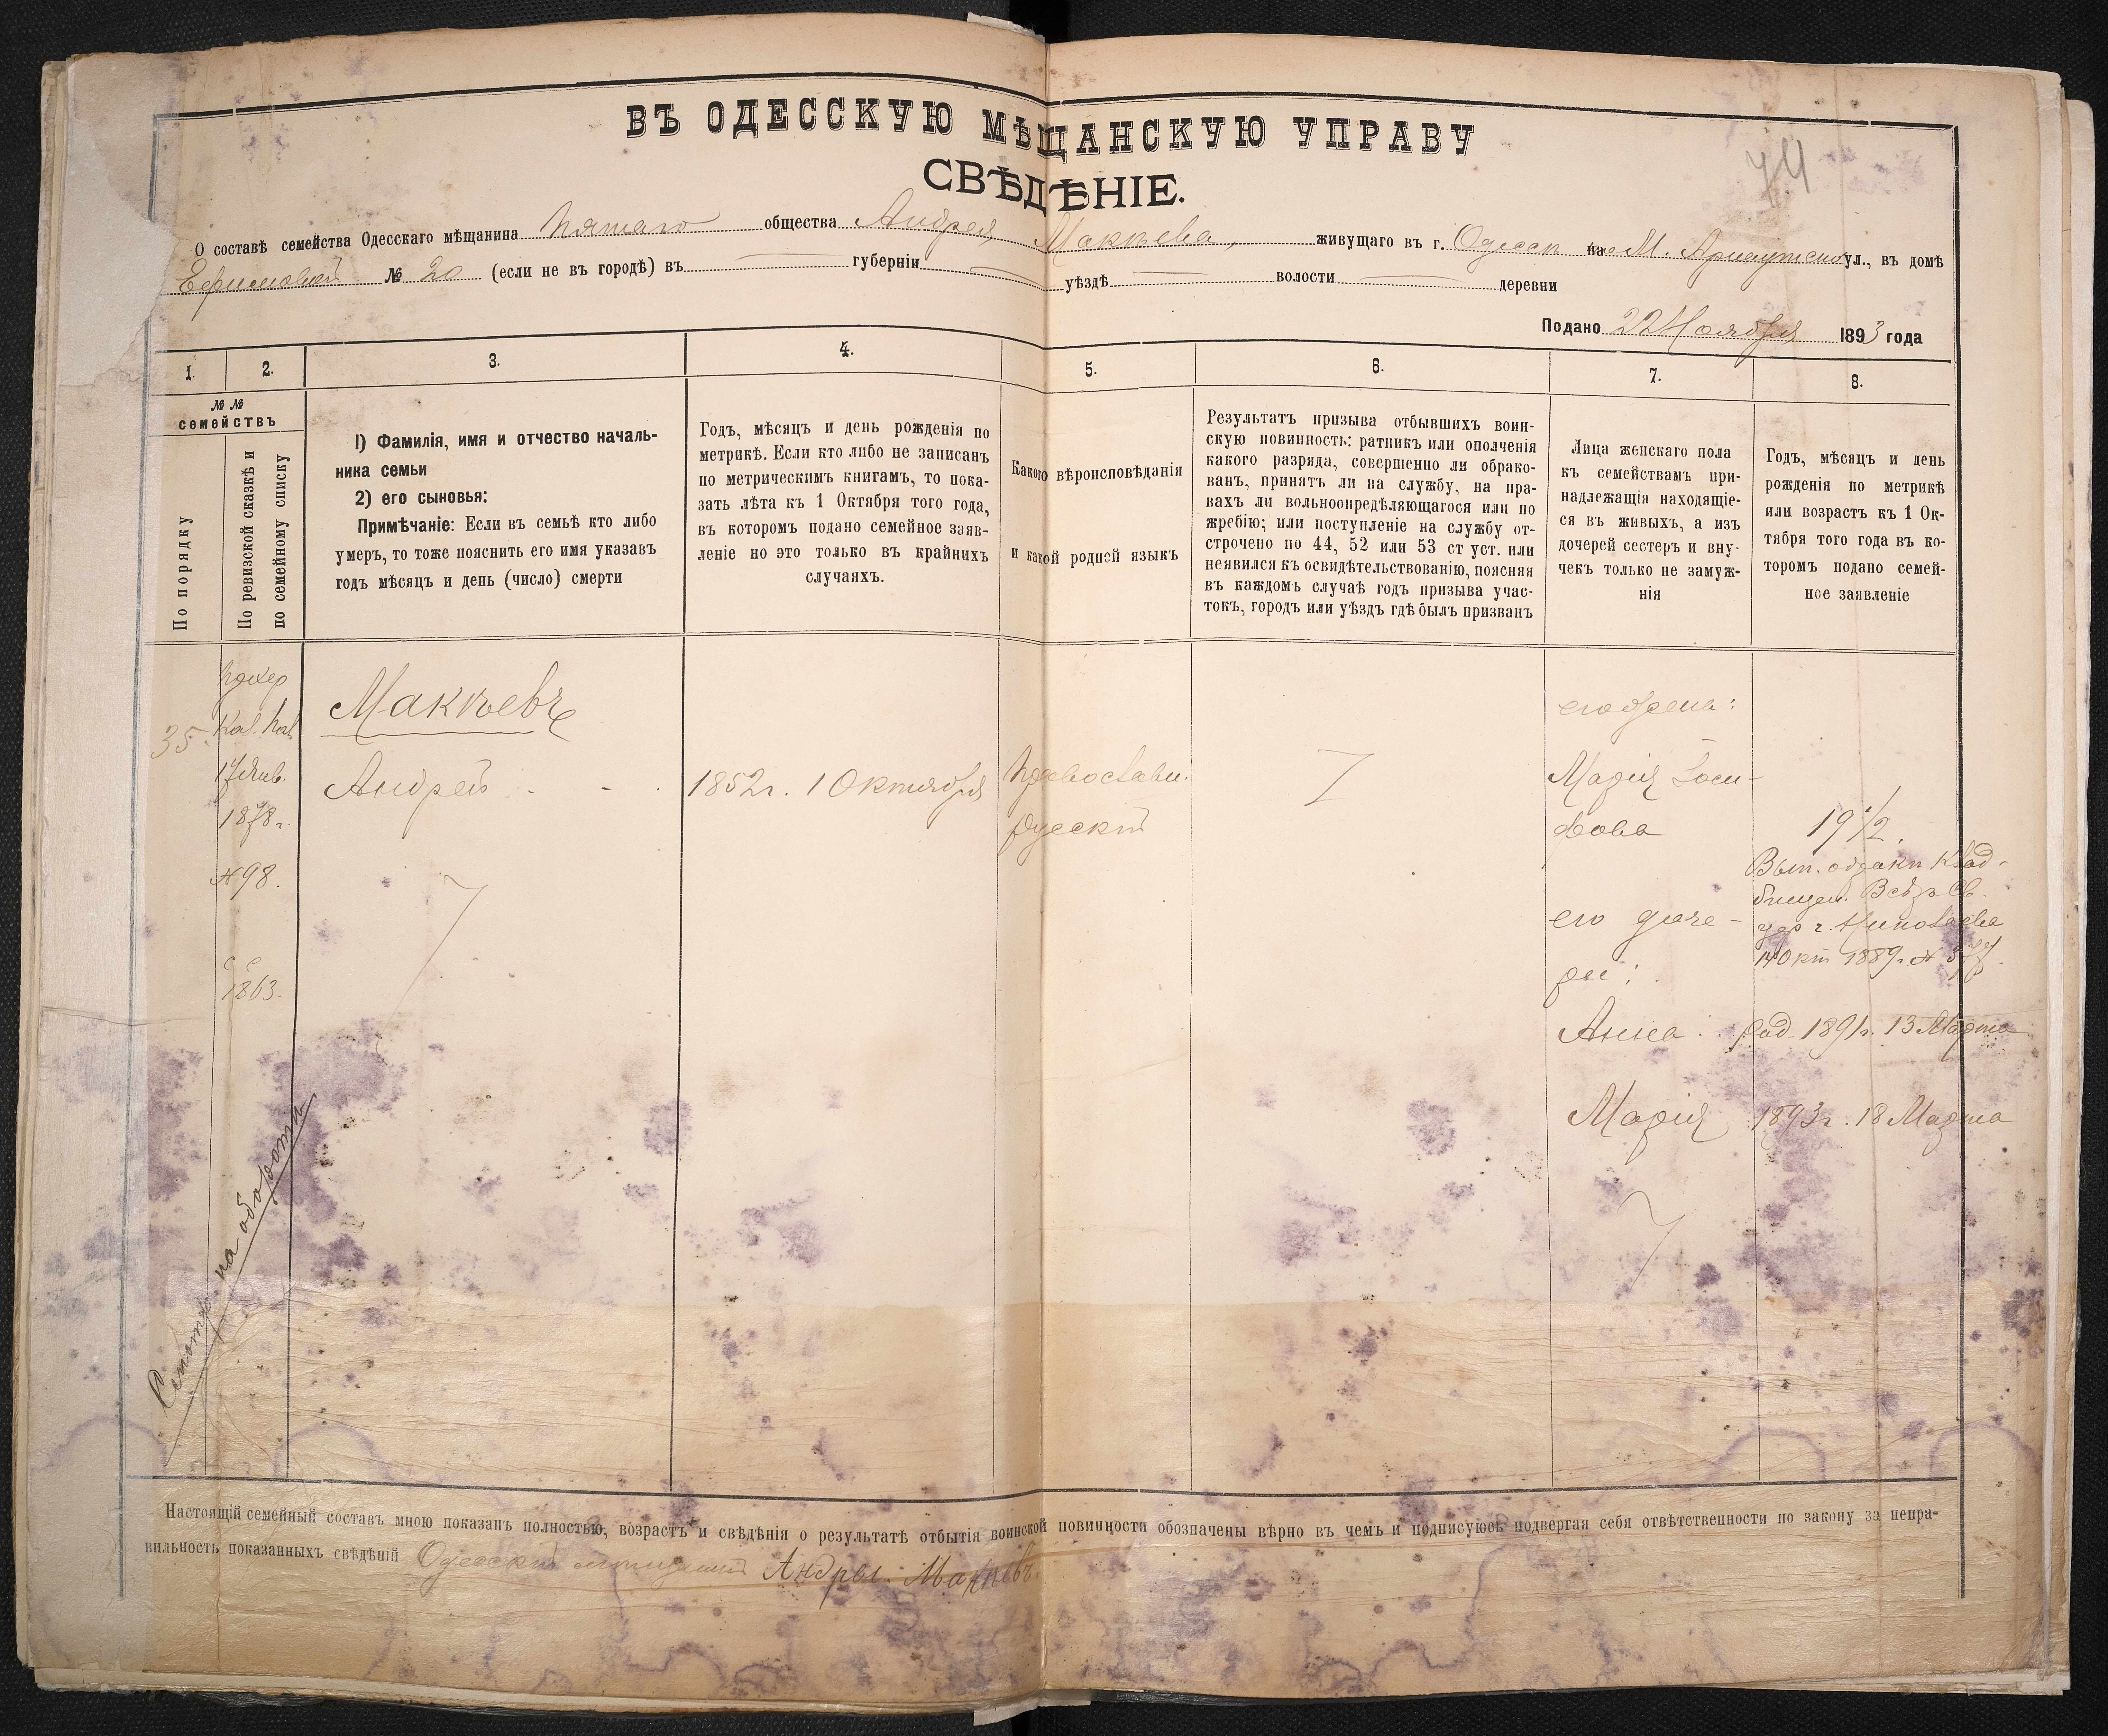 ВЪ ОДЕССКУЮ МѢЩАНСКУЮ УПРАВУ
СВѢДѢНІЕ.
О составѣ семейства Одесскаго мѣщанина пятаго общества Андрея Макѣева, живущаго въ г. Одессѣ на М. Арнаутской ул., въ домѣ
№ 20 (если не въ городѣ) въ губерніи уѣздѣ волости деревни
Подано 22 Ноября 1893 года
1. 2. 3. 4. 5. 6. 7. 8.
№ №
семействъ
По порядку
По ревизской сказкѣ и
по семейному списку
1) Фамилія, имя и отчество началь-
ника семьи
2) его сыновья:
Примѣчаніе: Если въ семьѣ кто либо
умеръ, то тоже пояснить его имя указавъ
годъ мѣсяцъ и день (число) смерти
Годъ, мѣсяцъ и день рожденія по
метрикѣ. Если кто либо не записанъ
по метрическимъ книгамъ, то пока-
зать лѣта къ 1 Октября того года,
въ которомъ подано семейное заяв-
леніе но это только въ крайнихъ
случаяхъ.
Какого вѣроисповѣданія
и какой родной языкъ
Результатъ призыва отбывшихъ воин-
скую повинность: ратникъ или ополченія
какого разряда, совершенно ли обрако-
ванъ, принятъ ли на службу, на пра-
вахъ ли вольноопредѣляющагося или по
жребію; или поступленіе на службу от-
строчено по 44, 52 или 53 ст уст. или
неявился къ освидѣтельствованію, поясняя
въ каждомъ случаѣ годъ призыва учас-
токъ, городъ или уѣздъ гдѣ былъ призванъ
Лица женскаго пола
къ семействамъ при-
надлежащія находящіе-
ся въ живыхъ, а изъ
дочерей сестеръ и вну-
чекъ только не замуж-
нія
Годъ, мѣсяцъ и день
рожденія по метрикѣ
или возрастъ къ 1 Ок-
тября того года въ ко-
торомъ подано семей-
ное заявленіе
35.
1878 г.
№ 98.
1863.
Макѣевъ
Андрей
1852 г. 1 Октября
Православн.
русскій
его жена:
Марія Іоси-
фова
19 1/2.
его доче-
ри:
Анна
род. 1891 г. 13 Марта
Марія
1893 г. 18 Марта
Смотр. на оборотѣ
Настоящій семейный составъ мною показанъ полностью, возрастъ и свѣдѣнія о результатѣ отбытія воинской повинности обозначены вѣрно въ чемъ и подписуюсь подвергая себя отвѣтственности по закону за непра-
вильность показанныхъ свѣдѣній Одесскій мѣщанинъ Андрей Макѣевъ